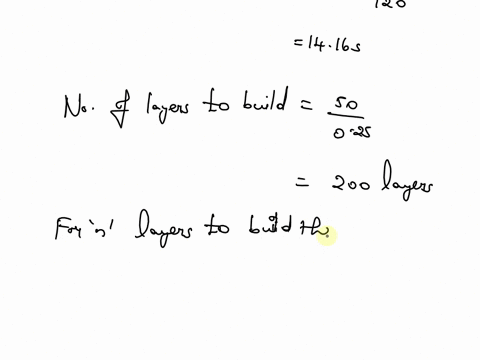 120
= 14.16s
No. of layers to build = 50
0.25
= 200 layers
For 'n' layers to build th